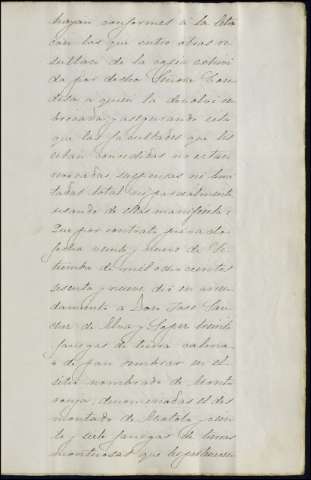 hayan conformes á la letra
con los que entre otros re
sultan de la copia exhivi
da por dicho Señor Con
desa, a quien la devolvi ru
bricada; y asegurando este
que las facultades que les
estan concedidas no estan
revocadas suspensas ni limi
tadas total ni parcialmente
usando de ellas manifiesta:
Que por contrato privado
fecha veinte y nueve de Se
tiembre de mil ochocientos
sesenta y nueve dió en arren
damiento a Don José San
chez de Alva y Lopez veinte
fanegas de tierra calma
ó de pan sembrar en el
sitio nombrado de Monte
denominadas el des
montado de vein
te y siete fanegas de tierras
montuosas que